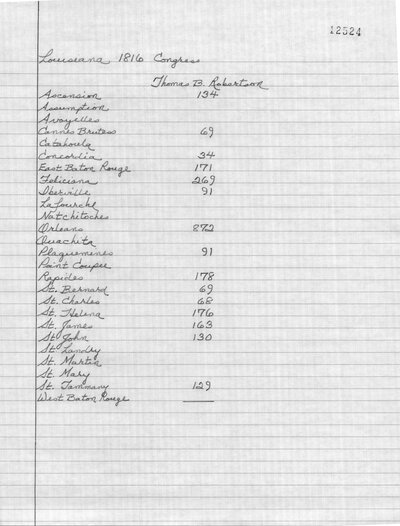 12524
Louisiana 1816 Congress
Thomas B. Robertson
Ascension 134
Assumption
Avoyelles
Cannes Brutess 69
Catahoula
Concordia 34
East Baton Rouge 171
Feliciana 269
Iberville 91
La Fourche
Natchitoches
Orleans 872
Ouachita
Plaquemenes 91
Point Coupee
Rapides 178
St. Bernard 69
St. Charles 68
St. Helena 176
St. James 163
St. John 130
St. Landry
St. Martin
St. Mary
St. Tammany 129
West Baton Rouge